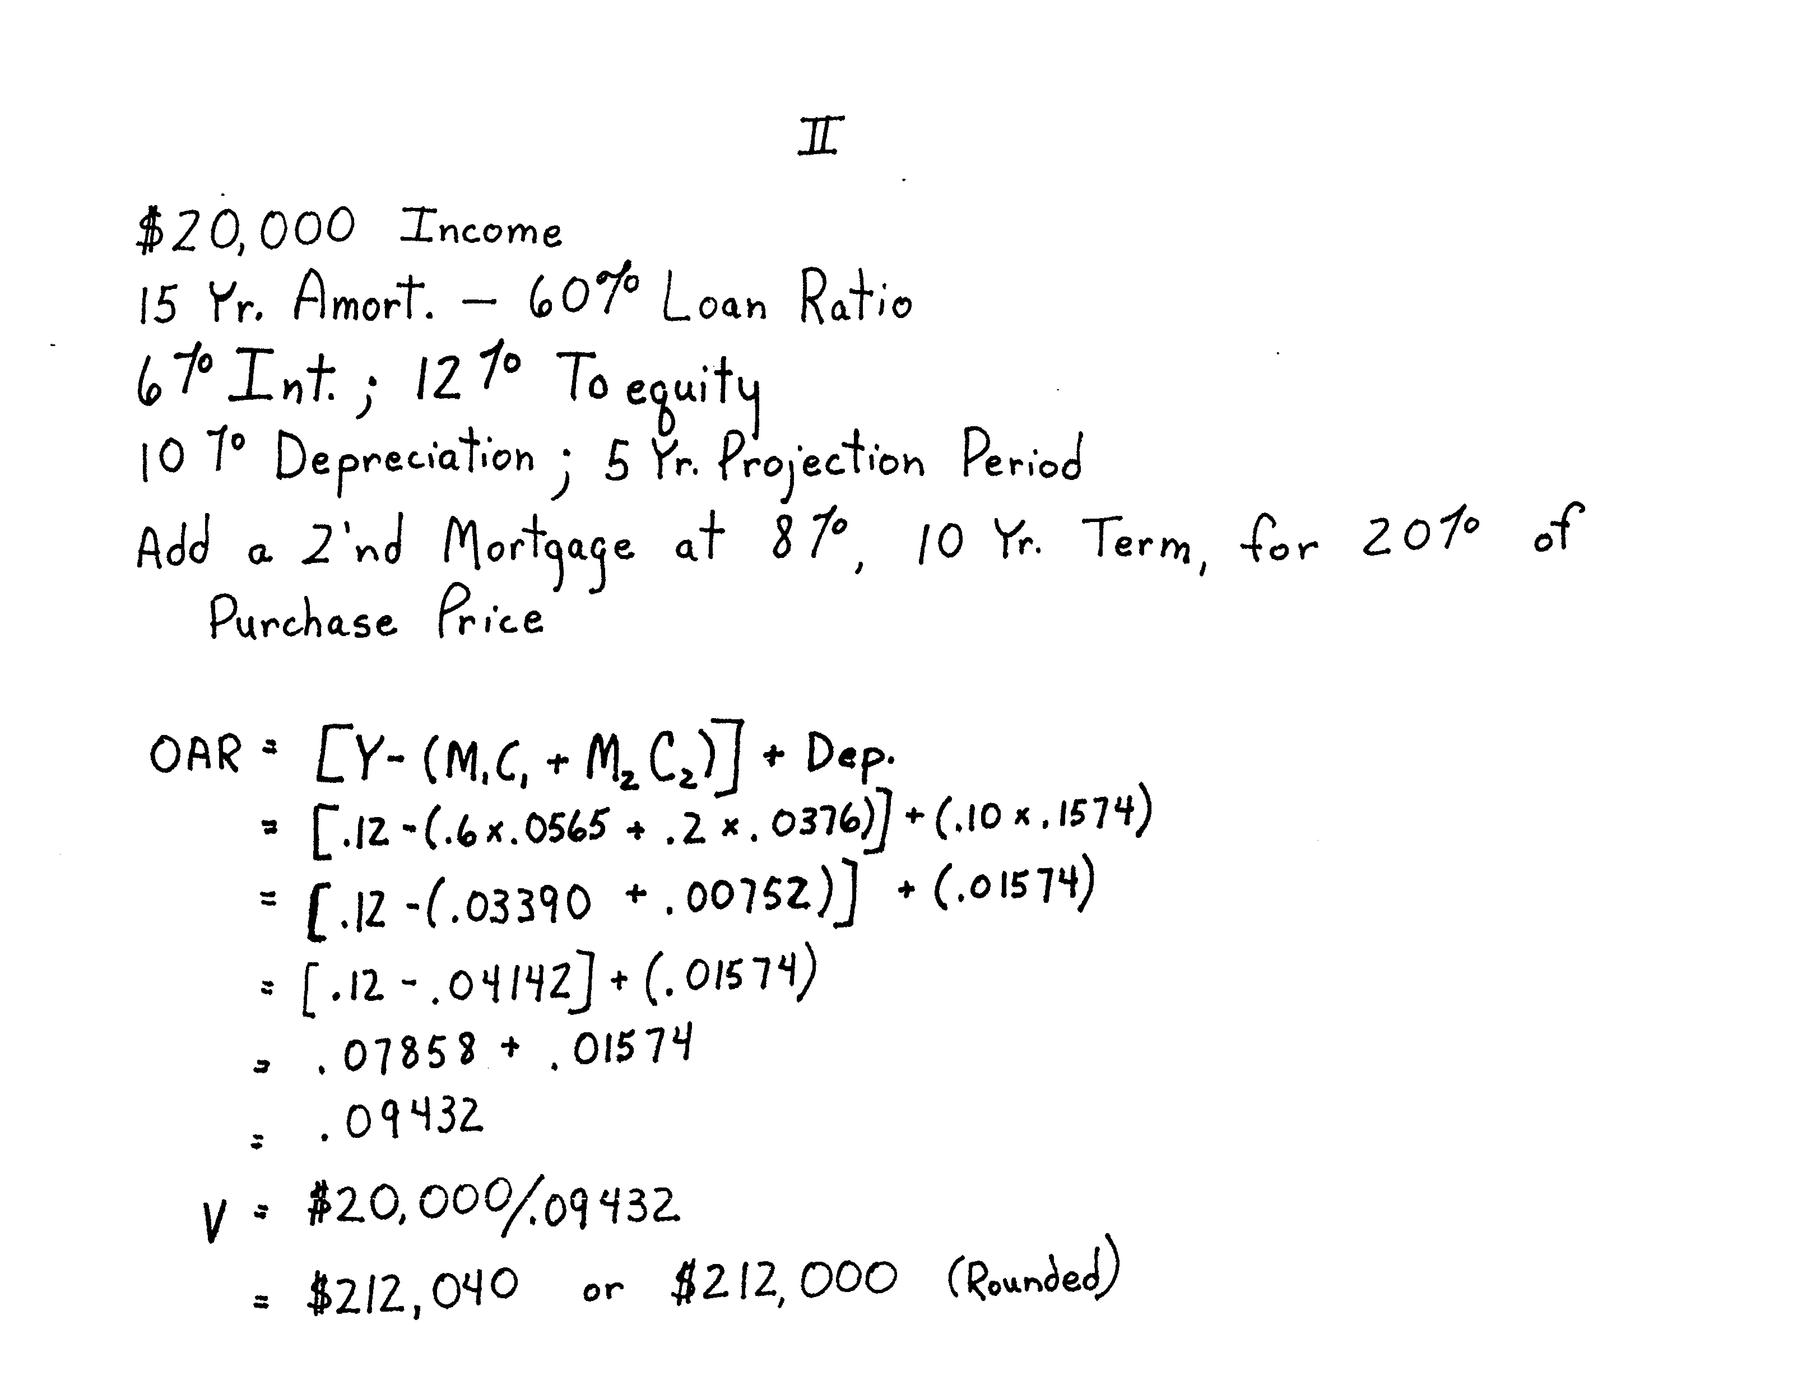 II
$20,000 Income
15 Yr. Amort. – 60% Loan Ratio
6% Int. ; 12% To equity
10% Depreciation ; 5 Yr. Projection Period
Add a 2'nd Mortgage at 8%, 10 Yr. Term, for 20% of
Purchase Price
OAR = [Y-(M₁C₁ + M₂C₂)] + Dep.
= [.12 -(.6 x .0565 + .2 x .0376)] + (.10 x .1574)
= [.12 -(.03390 + .00752)] + (.01574)
= [.12 - .04142] + (.01574)
= .07858 + .01574
= .09432
V = $20,000/.09432
= $212,040 or $212,000 (Rounded)